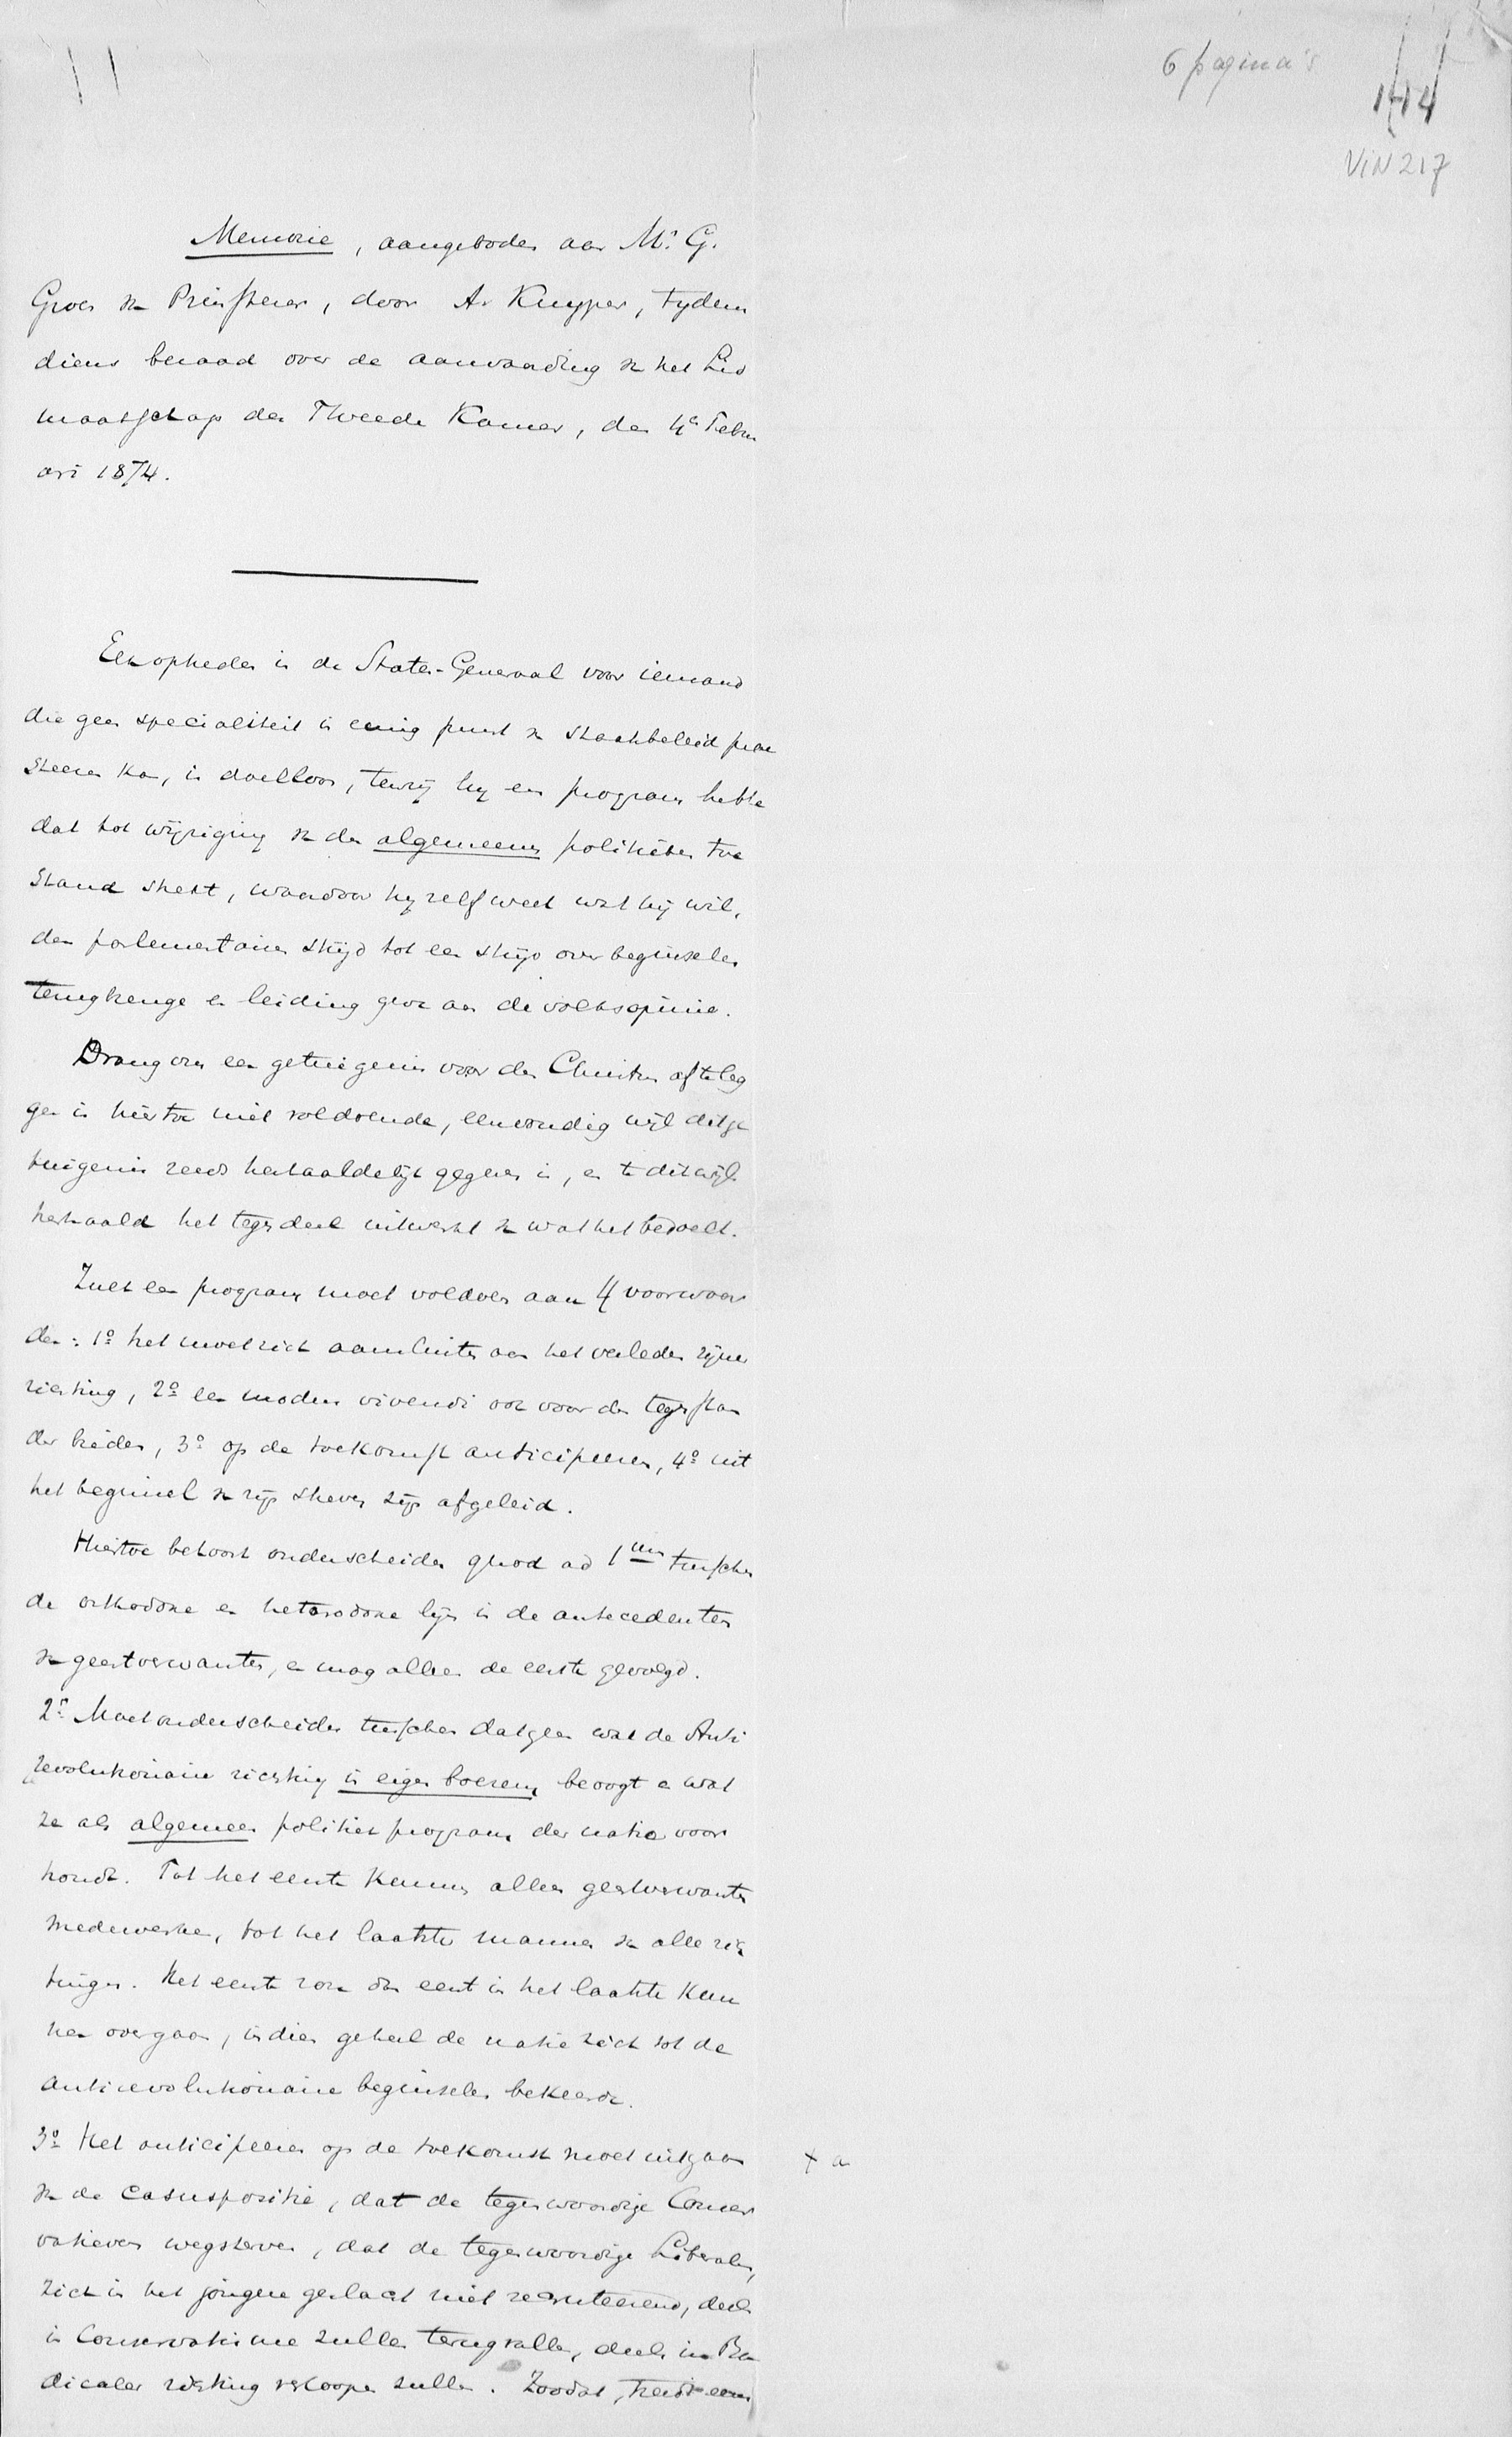 6 pagina's
114
VIN 217
Memorie, aangeboden aan Mr. G.
Groen v. Prinsterer, door A. Kuyper, tydens
diens beraad over de aanvaarding v. het Lid
maatschap der Tweede Kamer, den 4e Febru
ari 1874.
Een optreden in de Staten-Generaal voor iemand
die geen specialiteit in eenig punt v. staatsbeleid prae
steeren kan, is doelloos, tenzij hy een program hebbe
dat tot wijziging v. den algemeenen politieken toe
stand strekt, waardoor hy zelf weet wat hij wil,
den parlementairen strijd tot een strijd over beginselen
terugbrenge en leiding geve aan de volksopinie.
Drang om een getuigenis voor den Christus af te leg
gen is hiertoe niet voldoende, eenvoudig wijl dit ge
tuigenis reeds herhaaldelijk gegeven is, en te dikwijls
herhaald het tegendeel uitwerkt v. wat het bedoelt.
Zulk een program moet voldoen aan 4 voorwaar
den: 1o het moet zich aansluiten aan het verleden zijner
richting, 2o een modus vivendi ook voor den tegenstan
der bieden, 3o op de toekomst anticipeeren, 4o uit
het beginsel v. zijn streven zijn afgeleid.
Hiertoe behoort onderscheiden quod ad 1um tusschen
de orthodoxe en heterodoxe lijn in de antecedenten
v. geestverwanten, en mag alleen de eerste gevolgd.
2o Moet onderscheiden tusschen datgeen wat de Anti
revolutionaire richting in eigen boezem beoogt en wat
ze als algemeen politiek program der natie voor
houdt. Tot het eerste kunnen alleen geestverwanten
medewerken, tot het laatste mannen v. alle rich
tingen. Het eerste zou dan eerst in het laatste kun
nen overgaan, indien geheel de natie zich tot de
antirevolutionaire beginselen bekeerde.
3o Het anticipeeren op de toekomst moet uitgaan
+ a
v. de casuspositie, dat de tegenwoordige Conser
vatieven wegsterven, dat de tegenwoordige Liberalen,
zich in het jongere geslacht niet recruteerend, deels
in Conservatisme zullen terugvallen, deels in Ra
dicalen richting verloopen zullen. Zoodat, treedt eens